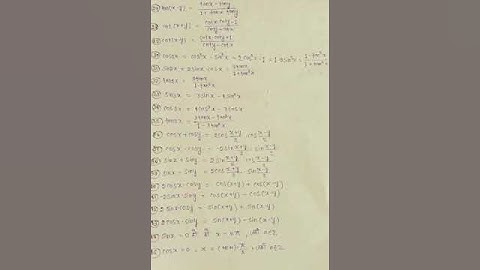 tan(x-y) = tanx - tany / 1+ tanx tany
cot(x+y) = cotx coty - 1 / coty + cotx
cot(x-y) = cotx coty + 1 / coty - cotx
cos2x = cos²x - sin²x = 2cos²x - 1 = 1 - 2sin²x = 1-tan²x / 1+tan²x
sin2x = 2sinx cosx = 2tanx / 1+tan²x
tan2x = 2tanx / 1-tan²x
sin3x = 3sinx - 4sin³x
cos3x = 4cos³x - 3cosx
cosx + cosy = 2cos x+y/2 cos x-y/2
cosx - cosy = -2sin x+y/2 sin x-y/2
sinx + siny = 2sin x+y/2 cos x-y/2
sinx - siny = 2cos x+y/2 sin x-y/2
2cosx cosy = cos(x+y) + cos(x-y)
-2sinx siny = cos(x+y) - cos(x-y)
2sinx cosy = sin(x+y) + sin(x-y)
2cosx siny = sin(x+y) - sin(x-y)
sinx = 0 x = nπ, n∈Z
cosx = 0, x = (2n+1) π/2, n∈Z